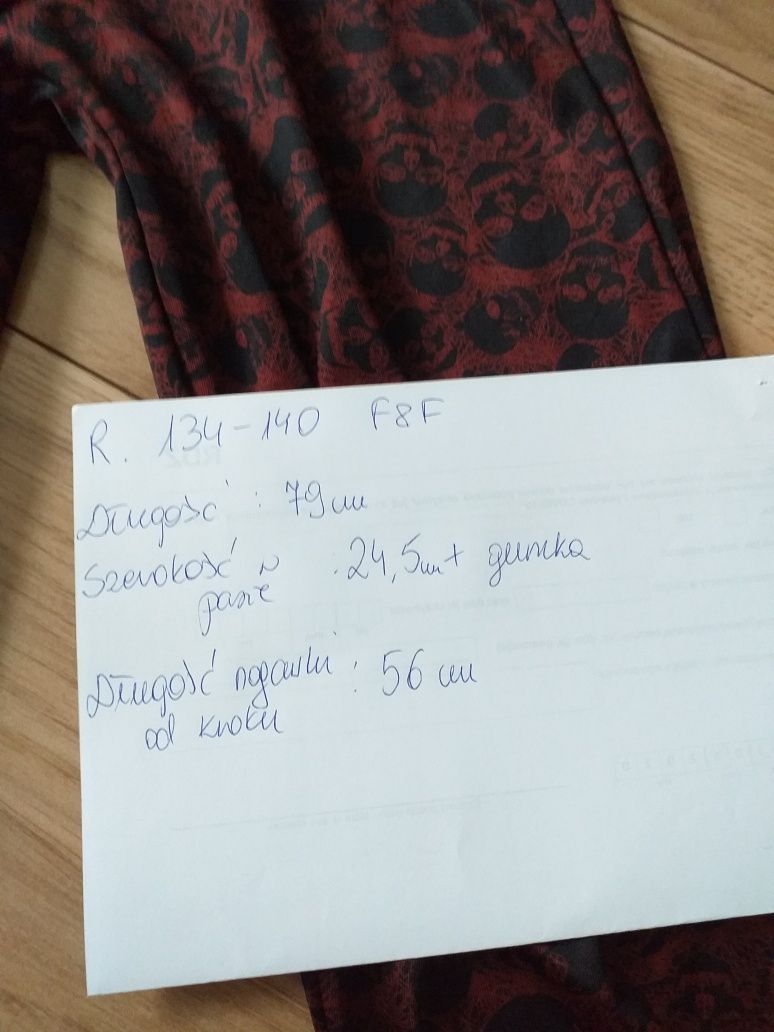 R. 134-140 F&F
Długość : 79 cm
Szerokość w : 24,5 cm + gumka
pasie
Długość nogawki : 56 cm
od kroku